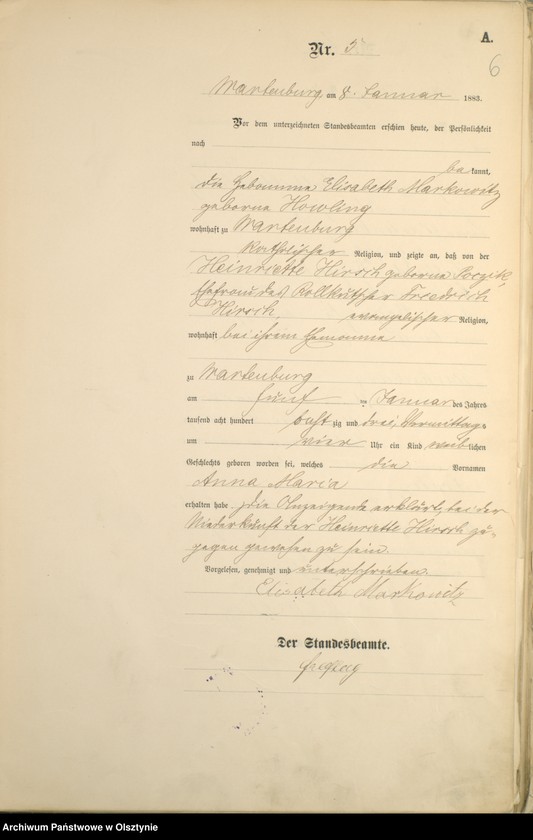 A.
Nr. 5
6
Wartenburg, am 8. Januar 1883.
Vor dem unterzeichneten Standesbeamten erschien heute, der Persönlichkeit
nach
be kannt,
die Hebamme Elisabeth Markowitz
geborne Howling
wohnhaft zu Wartenburg
katholischer Religion, und zeigte an, daß von der
Heinriette Hirsch geborne
Ehefrau des Rollkutscher Friedrich
Hirsch, evangelischer Religion,
wohnhaft bei ihrem Ehemanne
zu Wartenburg
am fünf ten Januar des Jahres
tausend acht hundert acht zig und drei, Vormittags
um vier Uhr ein Kind weib lichen
Geschlechts geboren worden sei, welches die Vornamen
Anna Maria
erhalten habe. Die Anzeigende erklärte, bei der
Niederkunft der Heinriette Hirsch zu-
gegen gewesen zu sein.
Vorgelesen, genehmigt und unterschrieben.
Elisabeth Markowitz
Der Standesbeamte.
Archiwum Państwowe w Olsztynie